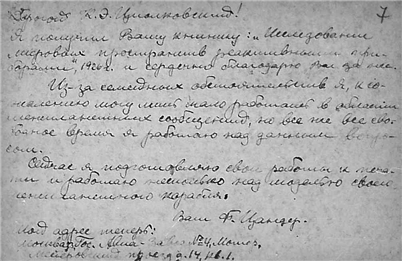 7
К.Э. Циолковский!
Я получил Вашу книжку: „Исследование
мировых пространств реактивными при-
борами", 1926 г. и сердечно благодарю Вас за нее.
Из-за семейных обстоятельств я, к со-
жалению могу лишь мало работать в области
межпланетных сообщений, но все же все сво-
бодное время я работаю над данным вопро-
сом.
Сейчас я подготовляю свои работы к печа-
ти и работаю несколько над моделью своего
межпланетного корабля.
Ваш Ф. Цандер.
Мой адрес теперь:
Москва, Гос. Авиа-завод №4, Мотор,
проезд д. 14, кв. 1.